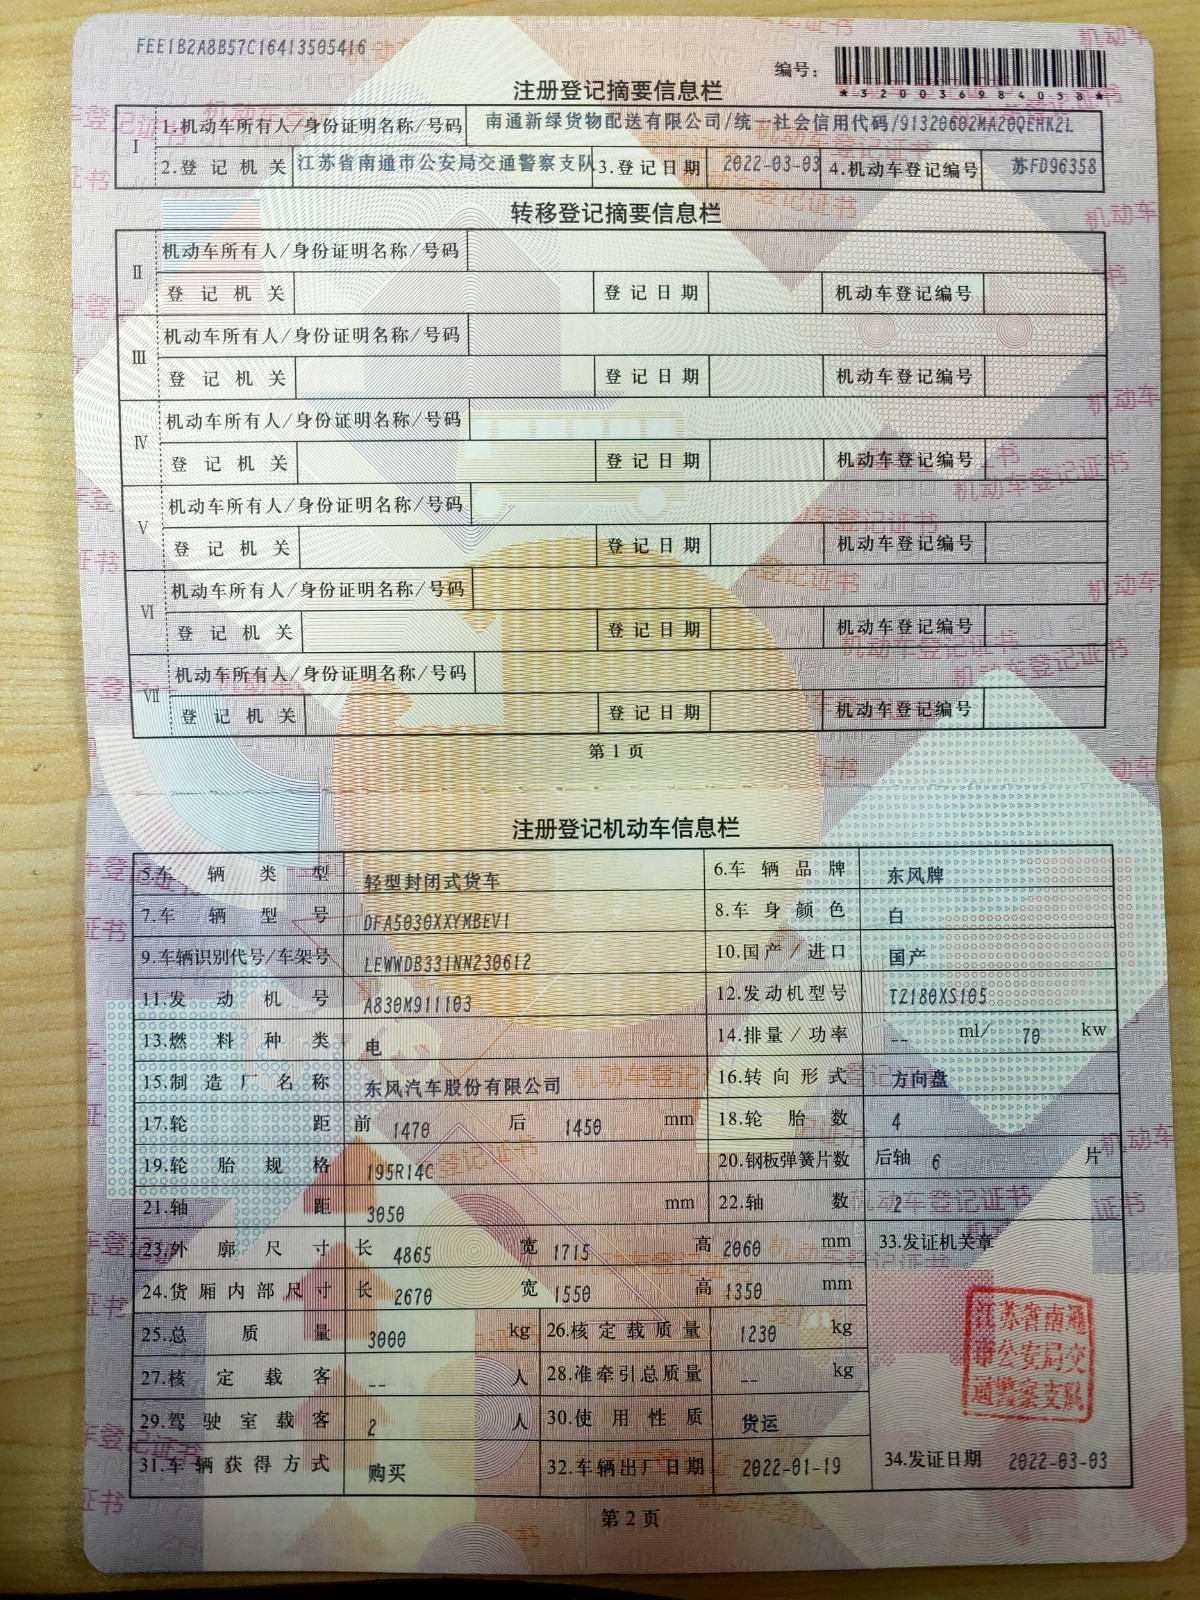 FEE1B2A8B57C16413505416
编号：
*320036984058*
注册登记摘要信息栏
Ⅰ 1.机动车所有人/身份证明名称/号码 南通新绿货物配送有限公司/统一社会信用代码/91320602MA20QERK2L
2.登记机关 江苏省南通市公安局交通警察支队 3.登记日期 2022-03-03 4.机动车登记编号 苏FD96358
转移登记摘要信息栏
Ⅱ 机动车所有人/身份证明名称/号码
登记机关 登记日期 机动车登记编号
Ⅲ 机动车所有人/身份证明名称/号码
登记机关 登记日期 机动车登记编号
Ⅳ 机动车所有人/身份证明名称/号码
登记机关 登记日期 机动车登记编号
Ⅴ 机动车所有人/身份证明名称/号码
登记机关 登记日期 机动车登记编号
Ⅵ 机动车所有人/身份证明名称/号码
登记机关 登记日期 机动车登记编号
Ⅶ 机动车所有人/身份证明名称/号码
登记机关 登记日期 机动车登记编号
第1页
注册登记机动车信息栏
5.车辆类型 轻型封闭式货车 6.车辆品牌 东风牌
7.车辆型号 DFA5030XXYMBEV1 8.车身颜色 白
9.车辆识别代号/车架号 LEWWDB331NN230612 10.国产/进口 国产
11.发动机号 A830M911103 12.发动机型号 TZ180XS105
13.燃料种类 电 14.排量/功率 -- ml/ 70 kw
15.制造厂名称 东风汽车股份有限公司 16.转向形式 方向盘
17.轮距 前 1470 后 1450 mm 18.轮胎数 4
19.轮胎规格 195R14C 20.钢板弹簧片数 后轴 6 片
21.轴距 3050 mm 22.轴数 2
23.外廓尺寸 长 4865 宽 1715 高 2060 mm 33.发证机关章
24.货厢内部尺寸 长 2670 宽 1550 高 1350 mm
25.总质量 3000 kg 26.核定载质量 1230 kg
江苏省南通
市公安局交
通警察支队
27.核定载客 -- 人 28.准牵引总质量 -- kg
29.驾驶室载客 2 人 30.使用性质 货运
31.车辆获得方式 购买 32.车辆出厂日期 2022-01-19 34.发证日期 2022-03-03
第2页